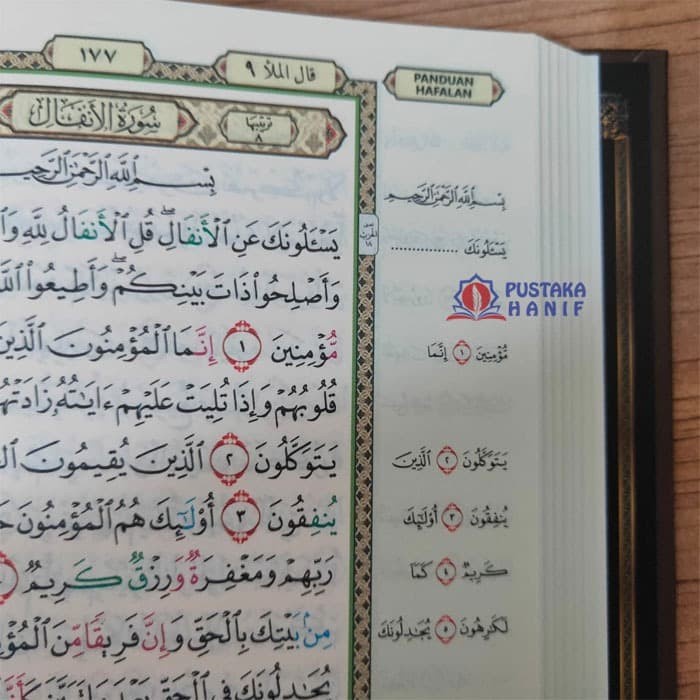 ١٧٧
قال الملأ ٩
سُورَةُ الأَنفَالِ
ترتيبها ٨
بِسْمِ اللَّهِ الرَّحْمَٰنِ الرَّحِيمِ
يَسْـَٔلُونَكَ عَنِ ٱلْأَنفَالِ ۖ قُلِ ٱلْأَنفَالُ لِلَّهِ
وَأَصْلِحُوا۟ ذَاتَ بَيْنِكُمْ ۖ وَأَطِيعُوا۟
مُّؤْمِنِينَ ١ إِنَّمَا ٱلْمُؤْمِنُونَ ٱلَّذِينَ
قُلُوبُهُمْ وَإِذَا تُلِيَتْ عَلَيْهِمْ ءَايَـٰتُهُۥ زَادَتْهُمْ
يَتَوَكَّلُونَ ٢ ٱلَّذِينَ يُقِيمُونَ
يُنفِقُونَ ٣ أُو۟لَـٰٓئِكَ هُمُ ٱلْمُؤْمِنُونَ
رَبِّهِمْ وَمَغْفِرَةٌ وَرِزْقٌ كَرِيمٌ
مِنۢ بَيْتِكَ بِٱلْحَقِّ وَإِنَّ فَرِيقًا مِّنَ
يُجَـٰدِلُونَكَ فِى ٱلْحَقِّ
PANDUAN
HAFALAN
بِسْمِ اللَّهِ الرَّحْمَٰنِ الرَّحِيمِ
يَسْـَٔلُونَكَ ................
PUSTAKA
HANIF
مُّؤْمِنِينَ ١ إِنَّمَا
يَتَوَكَّلُونَ ٢ ٱلَّذِينَ
يُنفِقُونَ ٣ أُو۟لَـٰٓئِكَ
كَرِيمٌ ٤ كَمَآ
لَكَـٰرِهُونَ ٥ يُجَـٰدِلُونَكَ